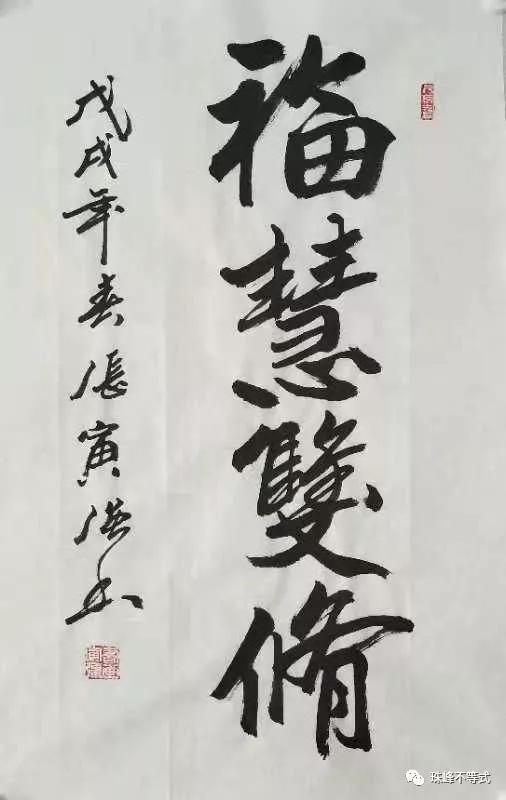 福慧雙脩
戊戌年春張寅洪書
珠峰不等式